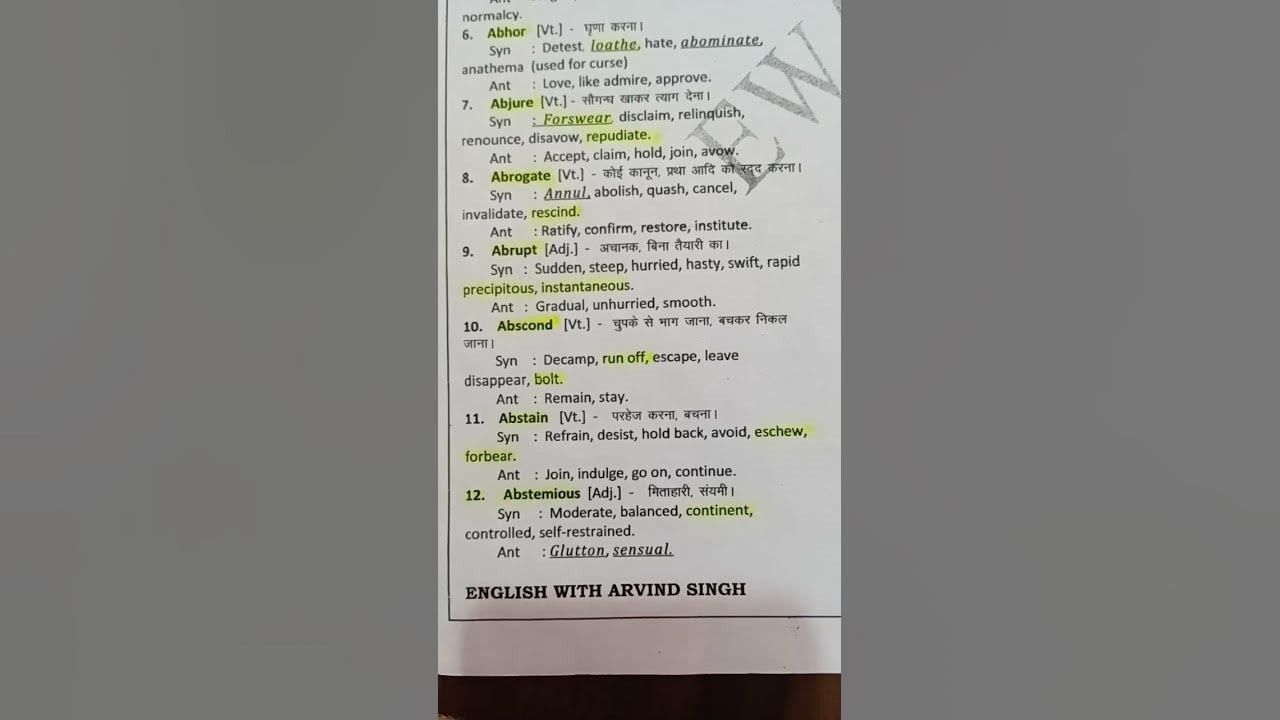 normalcy.
6. Abhor [Vt.] - घृणा करना।
Syn : Detest, loathe, hate, abominate,
anathema (used for curse)
Ant : Love, like admire, approve.
7. Abjure [Vt.] - सौगन्ध खाकर त्याग देना।
Syn : Forswear, disclaim, relinquish,
renounce, disavow, repudiate.
Ant : Accept, claim, hold, join, avow.
8. Abrogate [Vt.] - कोई कानून, प्रथा आदि को रद्द करना।
Syn : Annul, abolish, quash, cancel,
invalidate, rescind.
Ant : Ratify, confirm, restore, institute.
9. Abrupt [Adj.] - अचानक, बिना तैयारी का।
Syn : Sudden, steep, hurried, hasty, swift, rapid
precipitous, instantaneous.
Ant : Gradual, unhurried, smooth.
10. Abscond [Vt.] - चुपके से भाग जाना, बचकर निकल
जाना।
Syn : Decamp, run off, escape, leave
disappear, bolt.
Ant : Remain, stay.
11. Abstain [Vt.] - परहेज करना, बचना।
Syn : Refrain, desist, hold back, avoid, eschew,
forbear.
Ant : Join, indulge, go on, continue.
12. Abstemious [Adj.] - मिताहारी, संयमी।
Syn : Moderate, balanced, continent,
controlled, self-restrained.
Ant : Glutton, sensual.
ENGLISH WITH ARVIND SINGH
EW